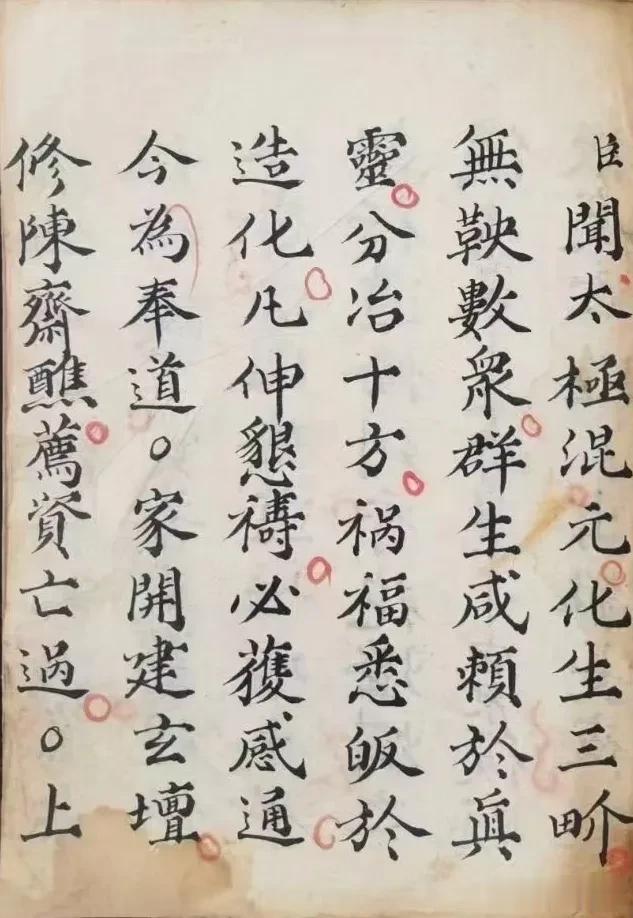 臣聞太極混元化生三畍
無鞅數衆群生咸頼於眞
靈分治十方禍福悉皈於
造化凡伸懇禱必獲感通
今為奉道○家開建玄壇
修陳齋醮薦資亡過○上